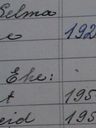 Selma
e 192
Eke:
t 195
eid 195